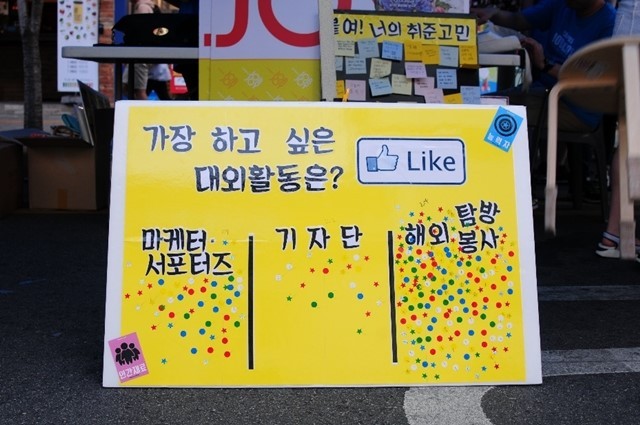 여! 너의 취준고민
가장 하고 싶은
대외활동은?
Like
마케터·
서포터즈
기자단
해외 탐방
봉사
인간재료
능력자